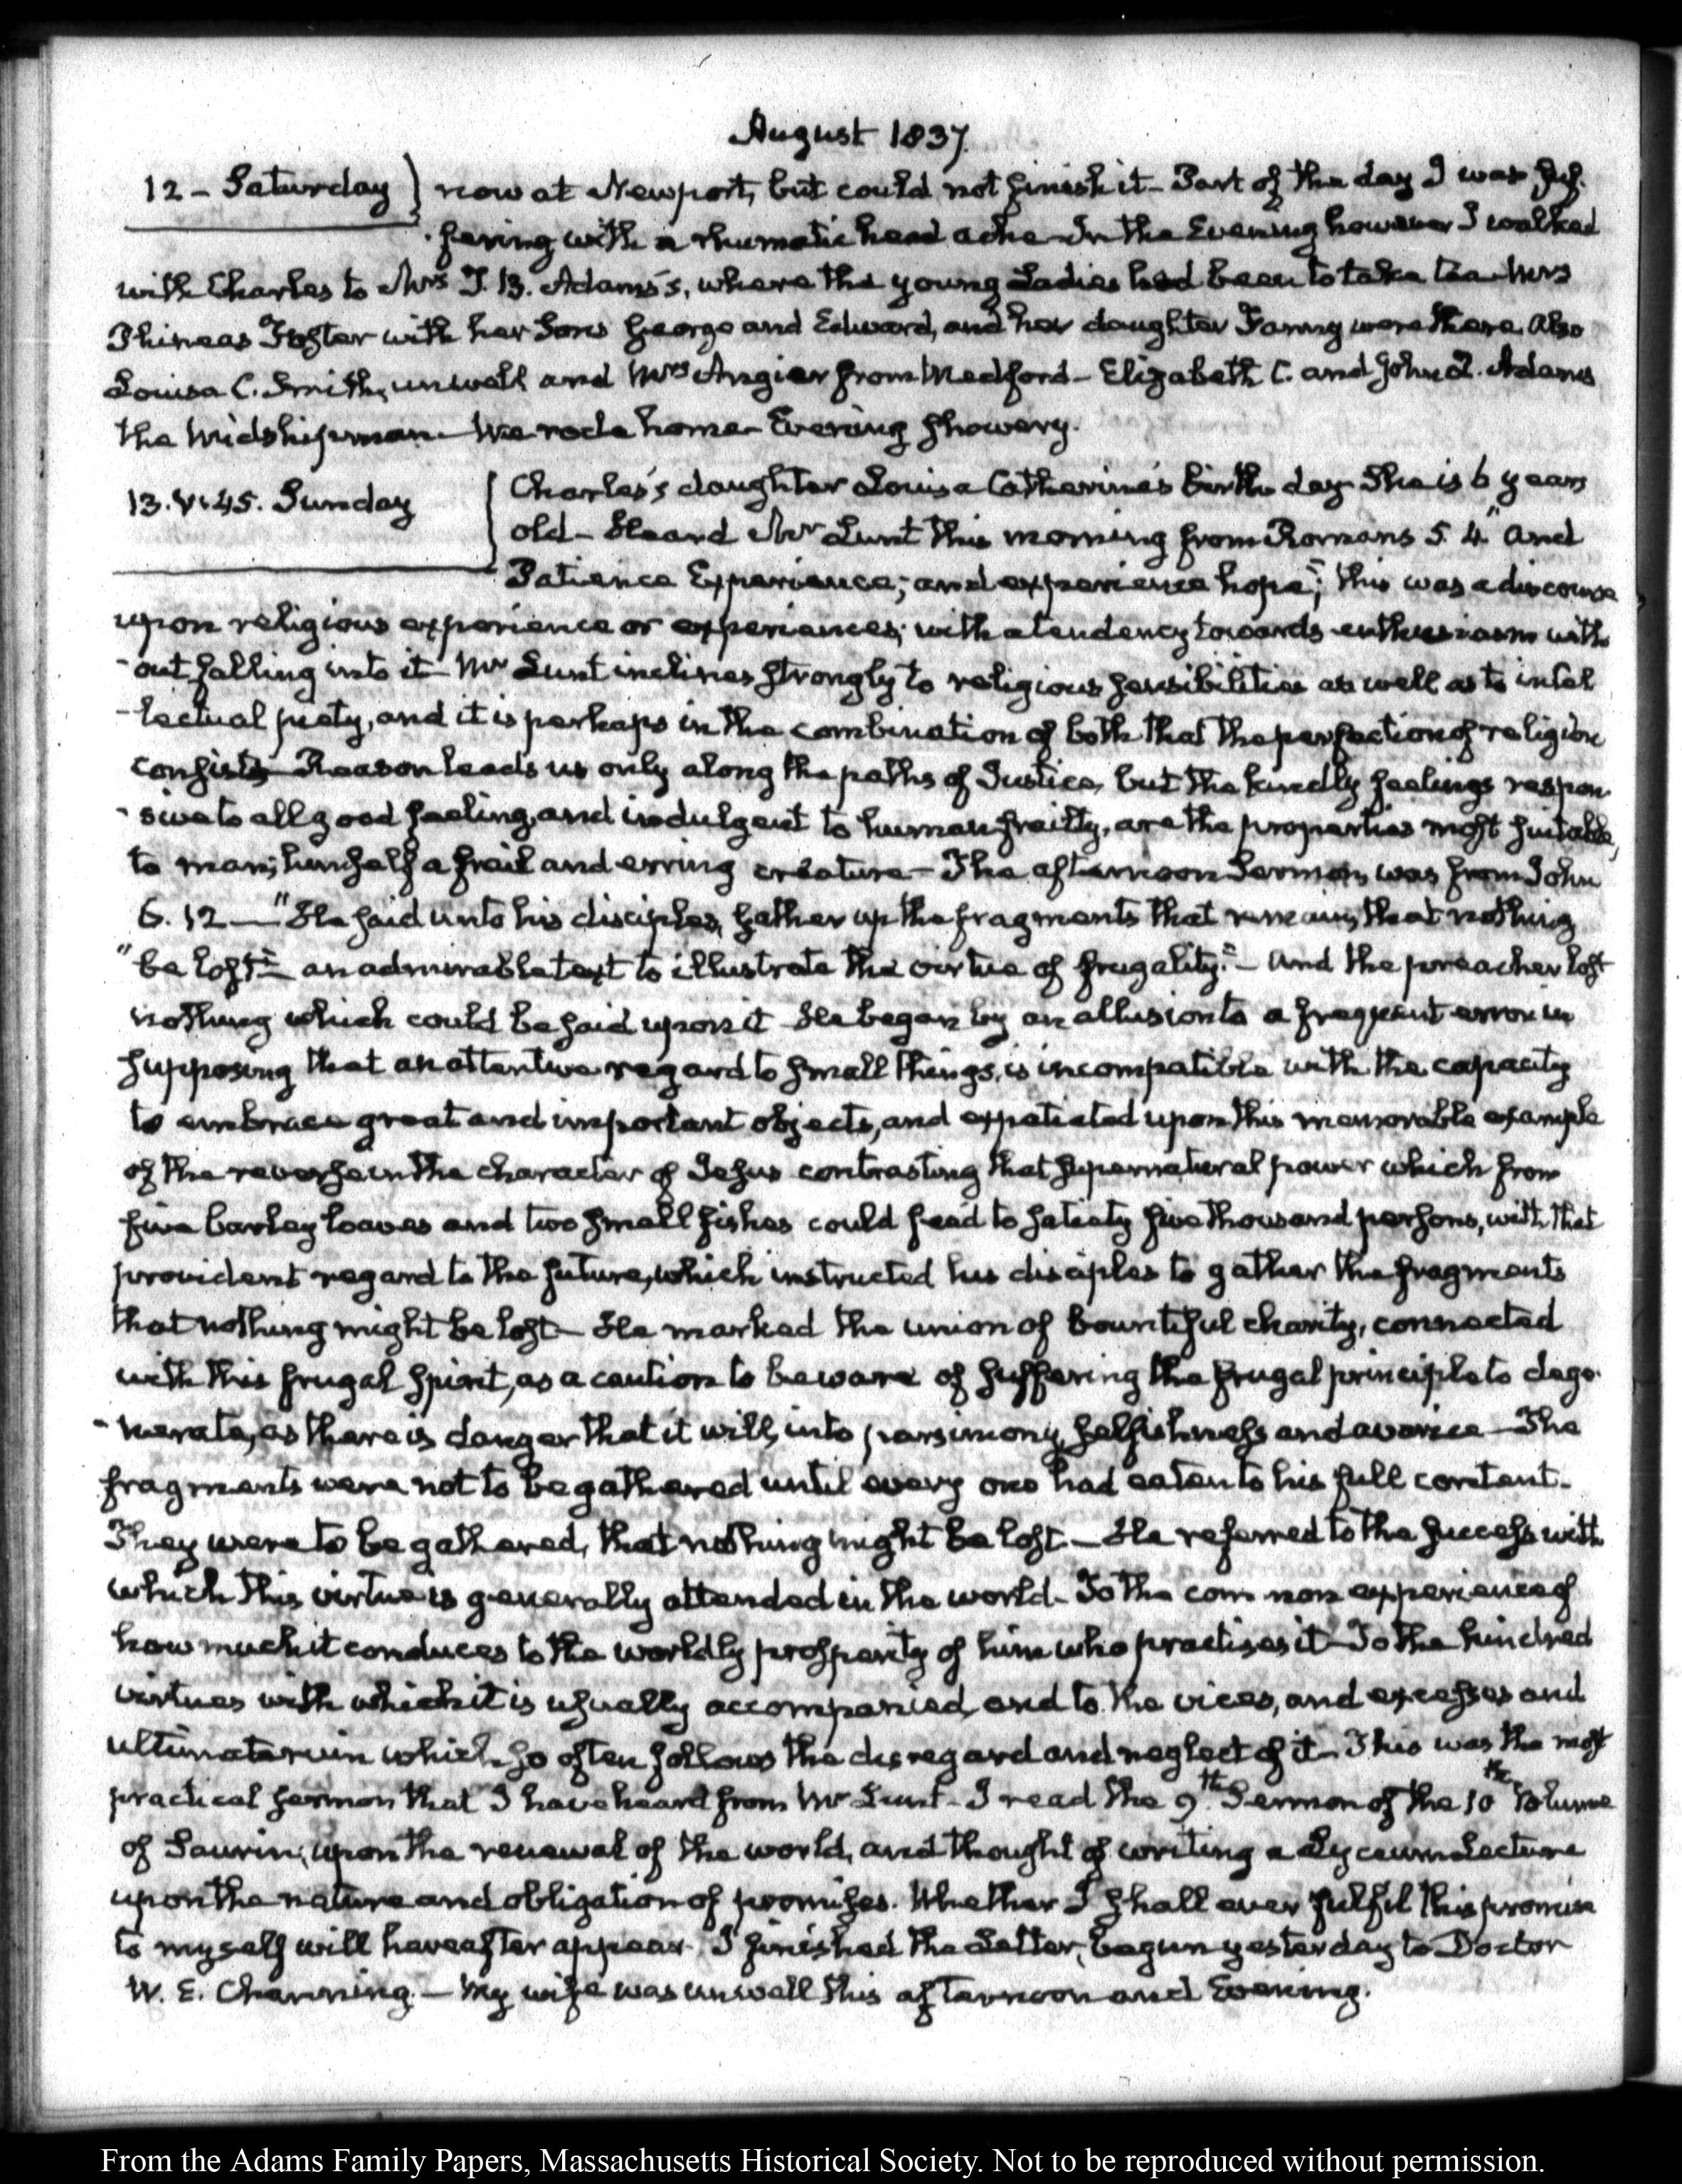 August 1837.
12 - Saturday } now at Newport, but could not finish it - Part of the day I was suf-
-fering with a rhumatic head ache - In the Evening however I walked
with Charles to Mrs T. B. Adams's, where the young Ladies had been to take tea - Mrs
Phineas Foster with her Sons George and Edward, and her daughter Fanny were there. Also
Louisa C. Smith, unwell and Mrs Angier from Medford - Elizabeth C. and John Q. Adams
the Midshipman - We rode home - Evening showery.
13. V:45. Sunday { Charles's daughter Louisa Catherine's birth day - She is 6 years
old - Heard Mr Lunt this morning from Romans 5. 4 "And
Patience Experience; and experience hope"; this was a discourse
upon religious experience or experiences; with a tendency towards enthusiasm with
-out falling into it - Mr Lunt inclines strongly to religious sensibilities as well as to intel
-lectual piety, and it is perhaps in the combination of both that the perfection of religion
consists - Reason leads us only along the paths of Justice, but the kindly feelings respon
-sive to all good feeling, and indulgent to human frailty, are the properties most suitable,
to man; himself a frail and erring creature - The afternoon Sermon, was from John
6. 12 - "He said unto his disciples, gather up the fragments that remain, that nothing
"be lost" - an admirable text to illustrate the virtue of frugality. - And the preacher lost
nothing which could be said upon it - He began by an allusion to a frequent error in
supposing that an attentive regard to small things, is incompatible with the capacity
to embrace great and important objects, and expatiated upon this memorable example
of the reverse in the character of Jesus contrasting that supernatural power which from
five barley loaves and two small fishes could feed to satiety five thousand persons, with that
provident regard to the future, which instructed his disciples to gather the fragments
that nothing might be lost - He marked the union of bountiful charity, connected
with this frugal spirit, as a caution to beware of suffering the frugal principle to dege-
-nerate, as there is danger that it will, into parsimony, selfishness and avarice - The
fragments were not to be gathered until every one had eaten to his full content -
They were to be gathered, that nothing might be lost. - He referred to the success with
which this virtue is generally attended in the world - To the common experience of
how much it conduces to the worldly prosperity of him who practises it - To the kindred
virtues with which it is usually accompanied, and to the vices, and excesses and
ultimate ruin which so often follows the disregard and neglect of it - This was the most
practical sermon that I have heard from Mr Lunt - I read the 9th Sermon of the 10th Volume
of Saurin, upon the renewal of the world, and thought of writing a Lyceum Lecture
upon the nature and obligation of promises. Whether I shall ever fulfil this promise
to myself will hereafter appear - I finished the Letter, begun yesterday to Doctor
W. E. Channing. - My wife was unwell this afternoon and Evening.
From the Adams Family Papers, Massachusetts Historical Society. Not to be reproduced without permission.